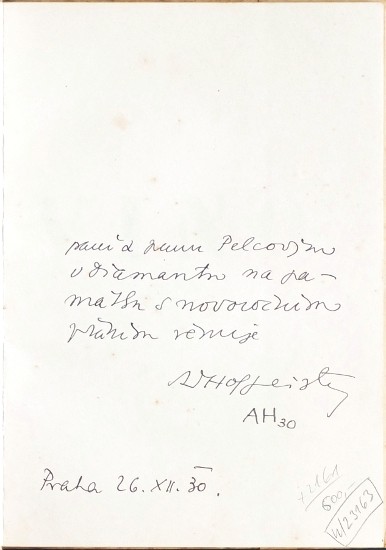 paní a panu Pelcovým
v diamantu na pa-
mátku s novoročním
přáním věnuje
AdHoffmeister
AH30
Praha 26. XII. 30.
+2161
500,-
4/23163